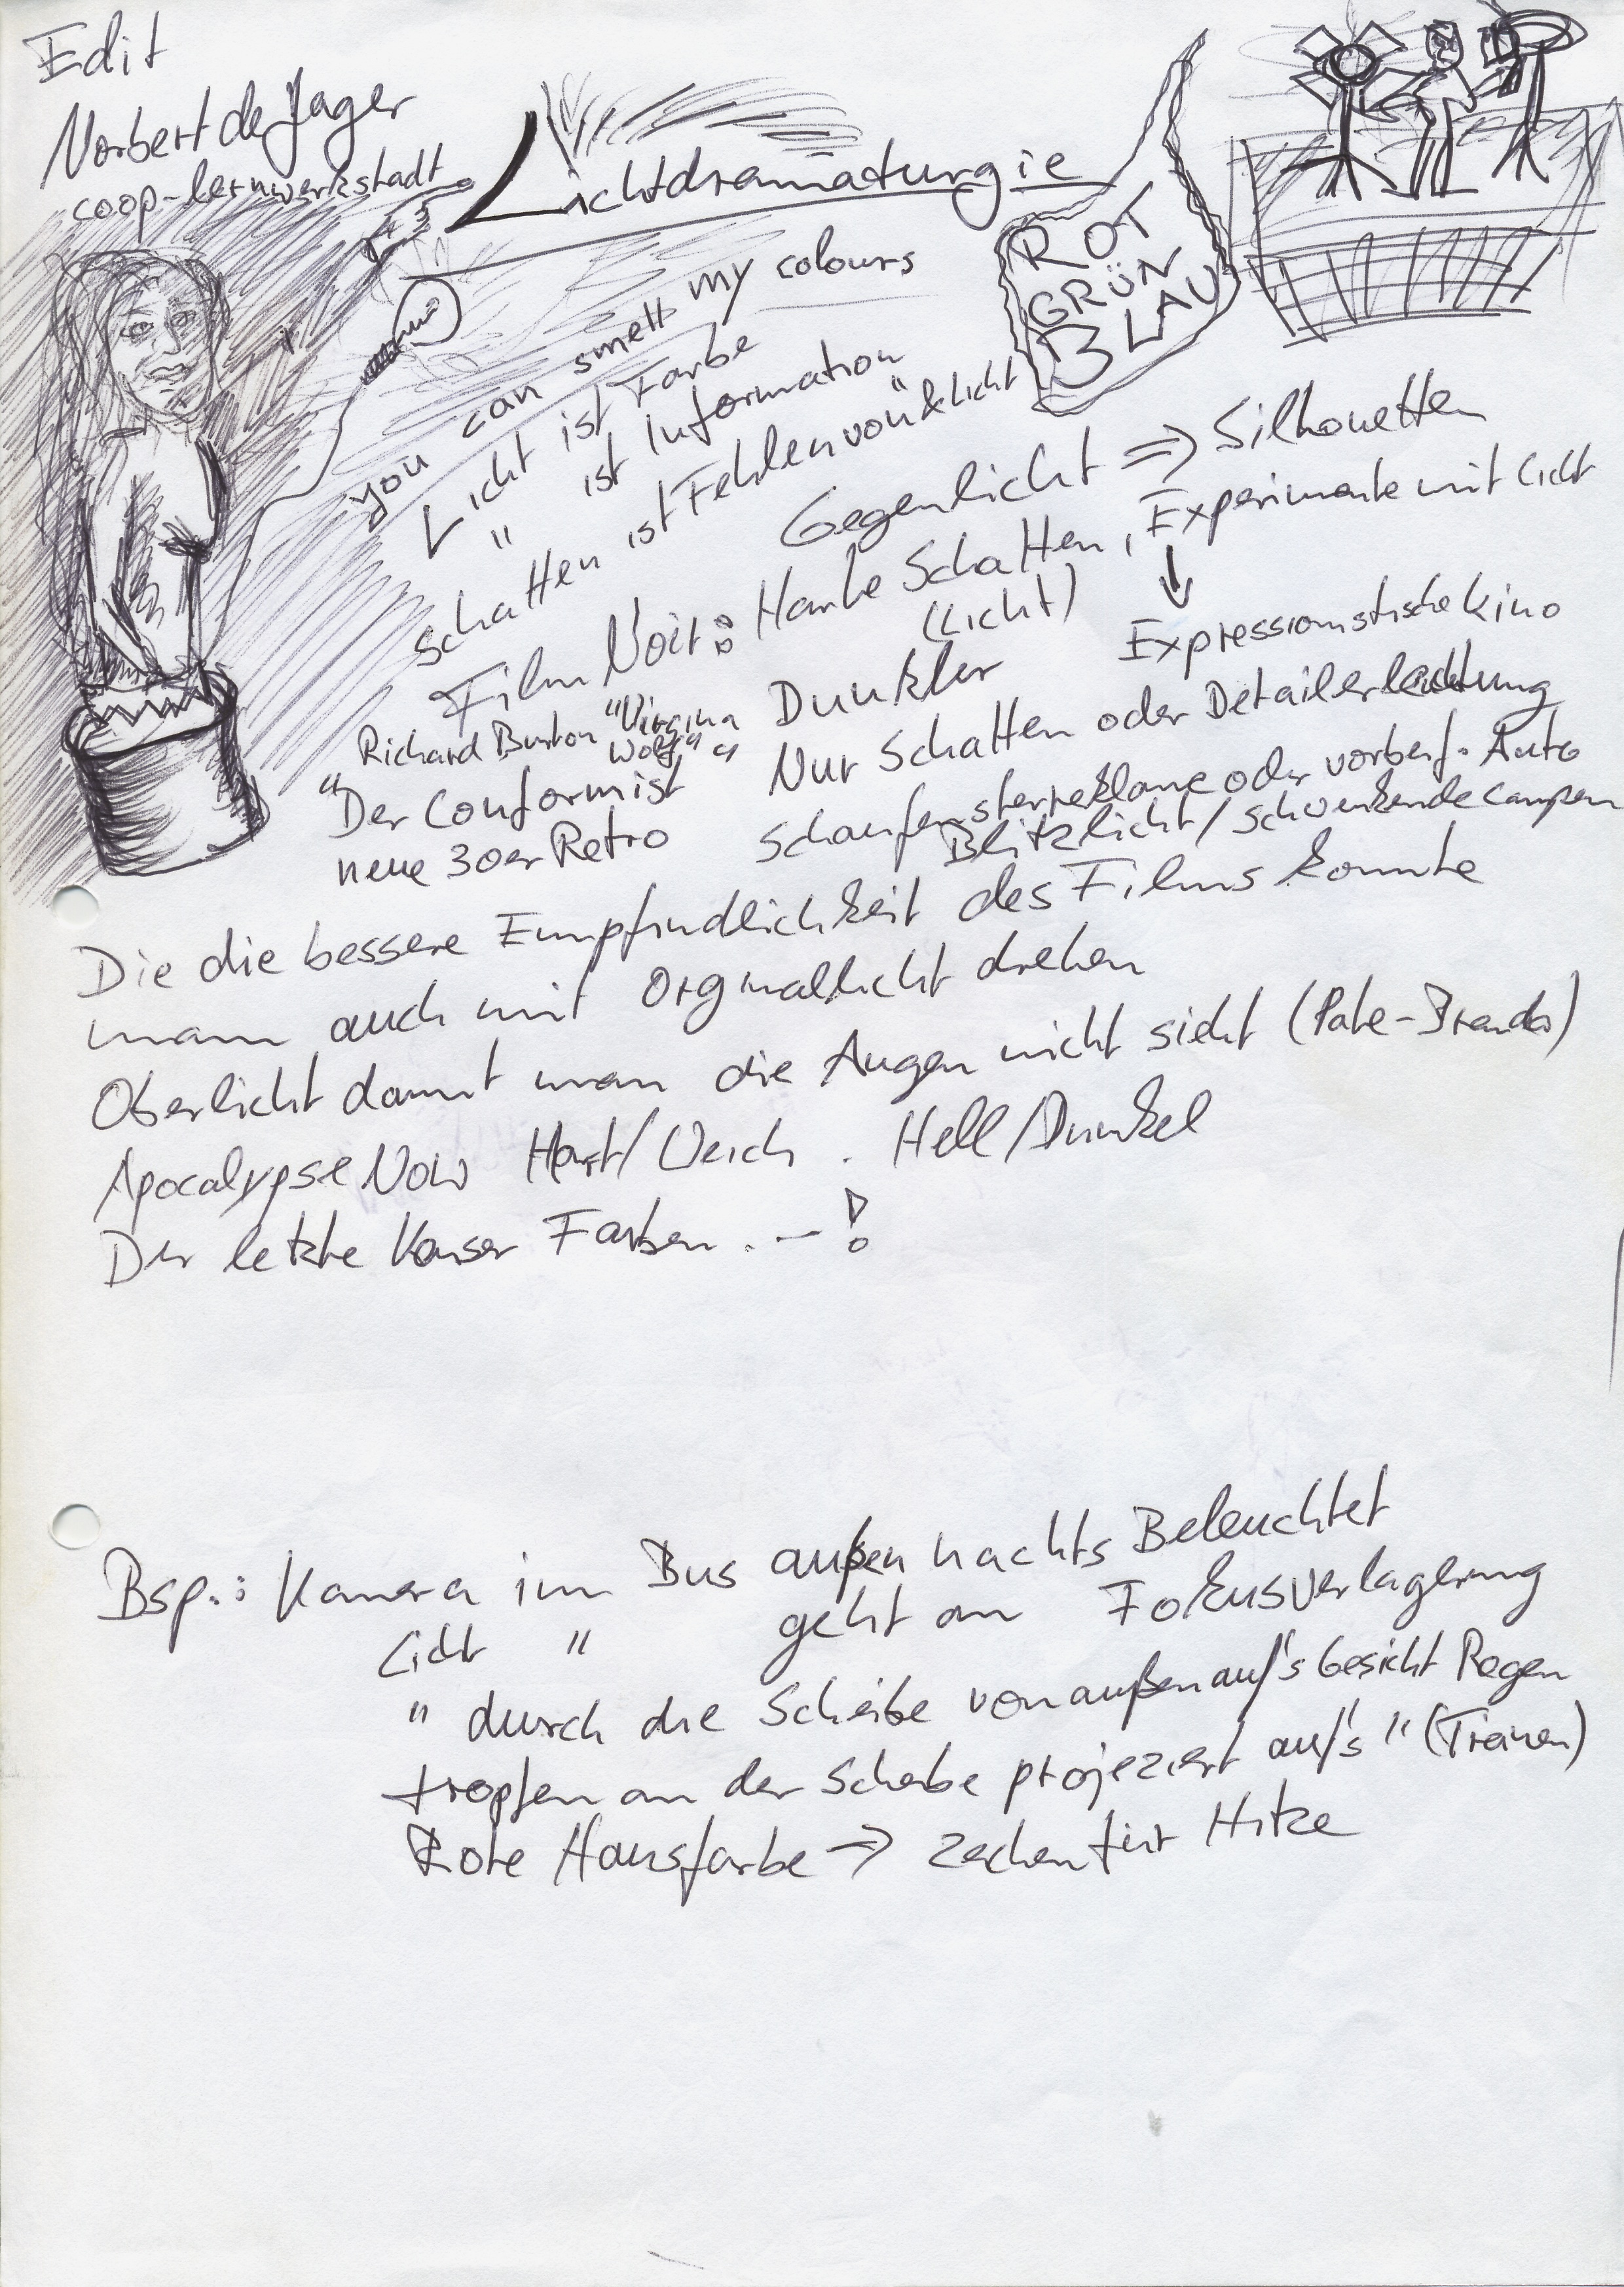 Edit
Norbert de Jager
coop-lernwerkstadt
Lichtdramaturgie
ROT
GRÜN
BLAU
you can smell my colours
Licht ist Farbe
" ist Information
Schatten ist Fehlen von " & Licht
Gegenlicht => Silhouetten
Film Noir: Harte Schatten, Experimente mit Licht
(Licht)
Expressionistische kino
Richard Burton "Virgina Wolf"
Dunkler
"Der Conformist"
Nur Schatten oder Detailerleuchtung
neue 30er Retro
Schaufensterreklame oder vorberf. Auto
Blitzlicht / schwenkende Lampen
Die die bessere Empfindlichkeit des Films konnte
man auch mit Orginallicht drehen
Oberlicht damit man die Augen nicht sieht (Pate-Brando)
Apocalypse Now Hart/Weich. Hell/Dunkel
Der letzte Kaiser Farben . - !
Bsp.: Kamera im Bus außen nachts Beleuchtet
Licht " geht an Fokusverlagerung
" durch die Scheibe von außen auf's Gesicht Regen
tropfen an der Scheibe projeziert auf's " (Tränen)
Rote Hausfarbe => Zeichen für Hitze